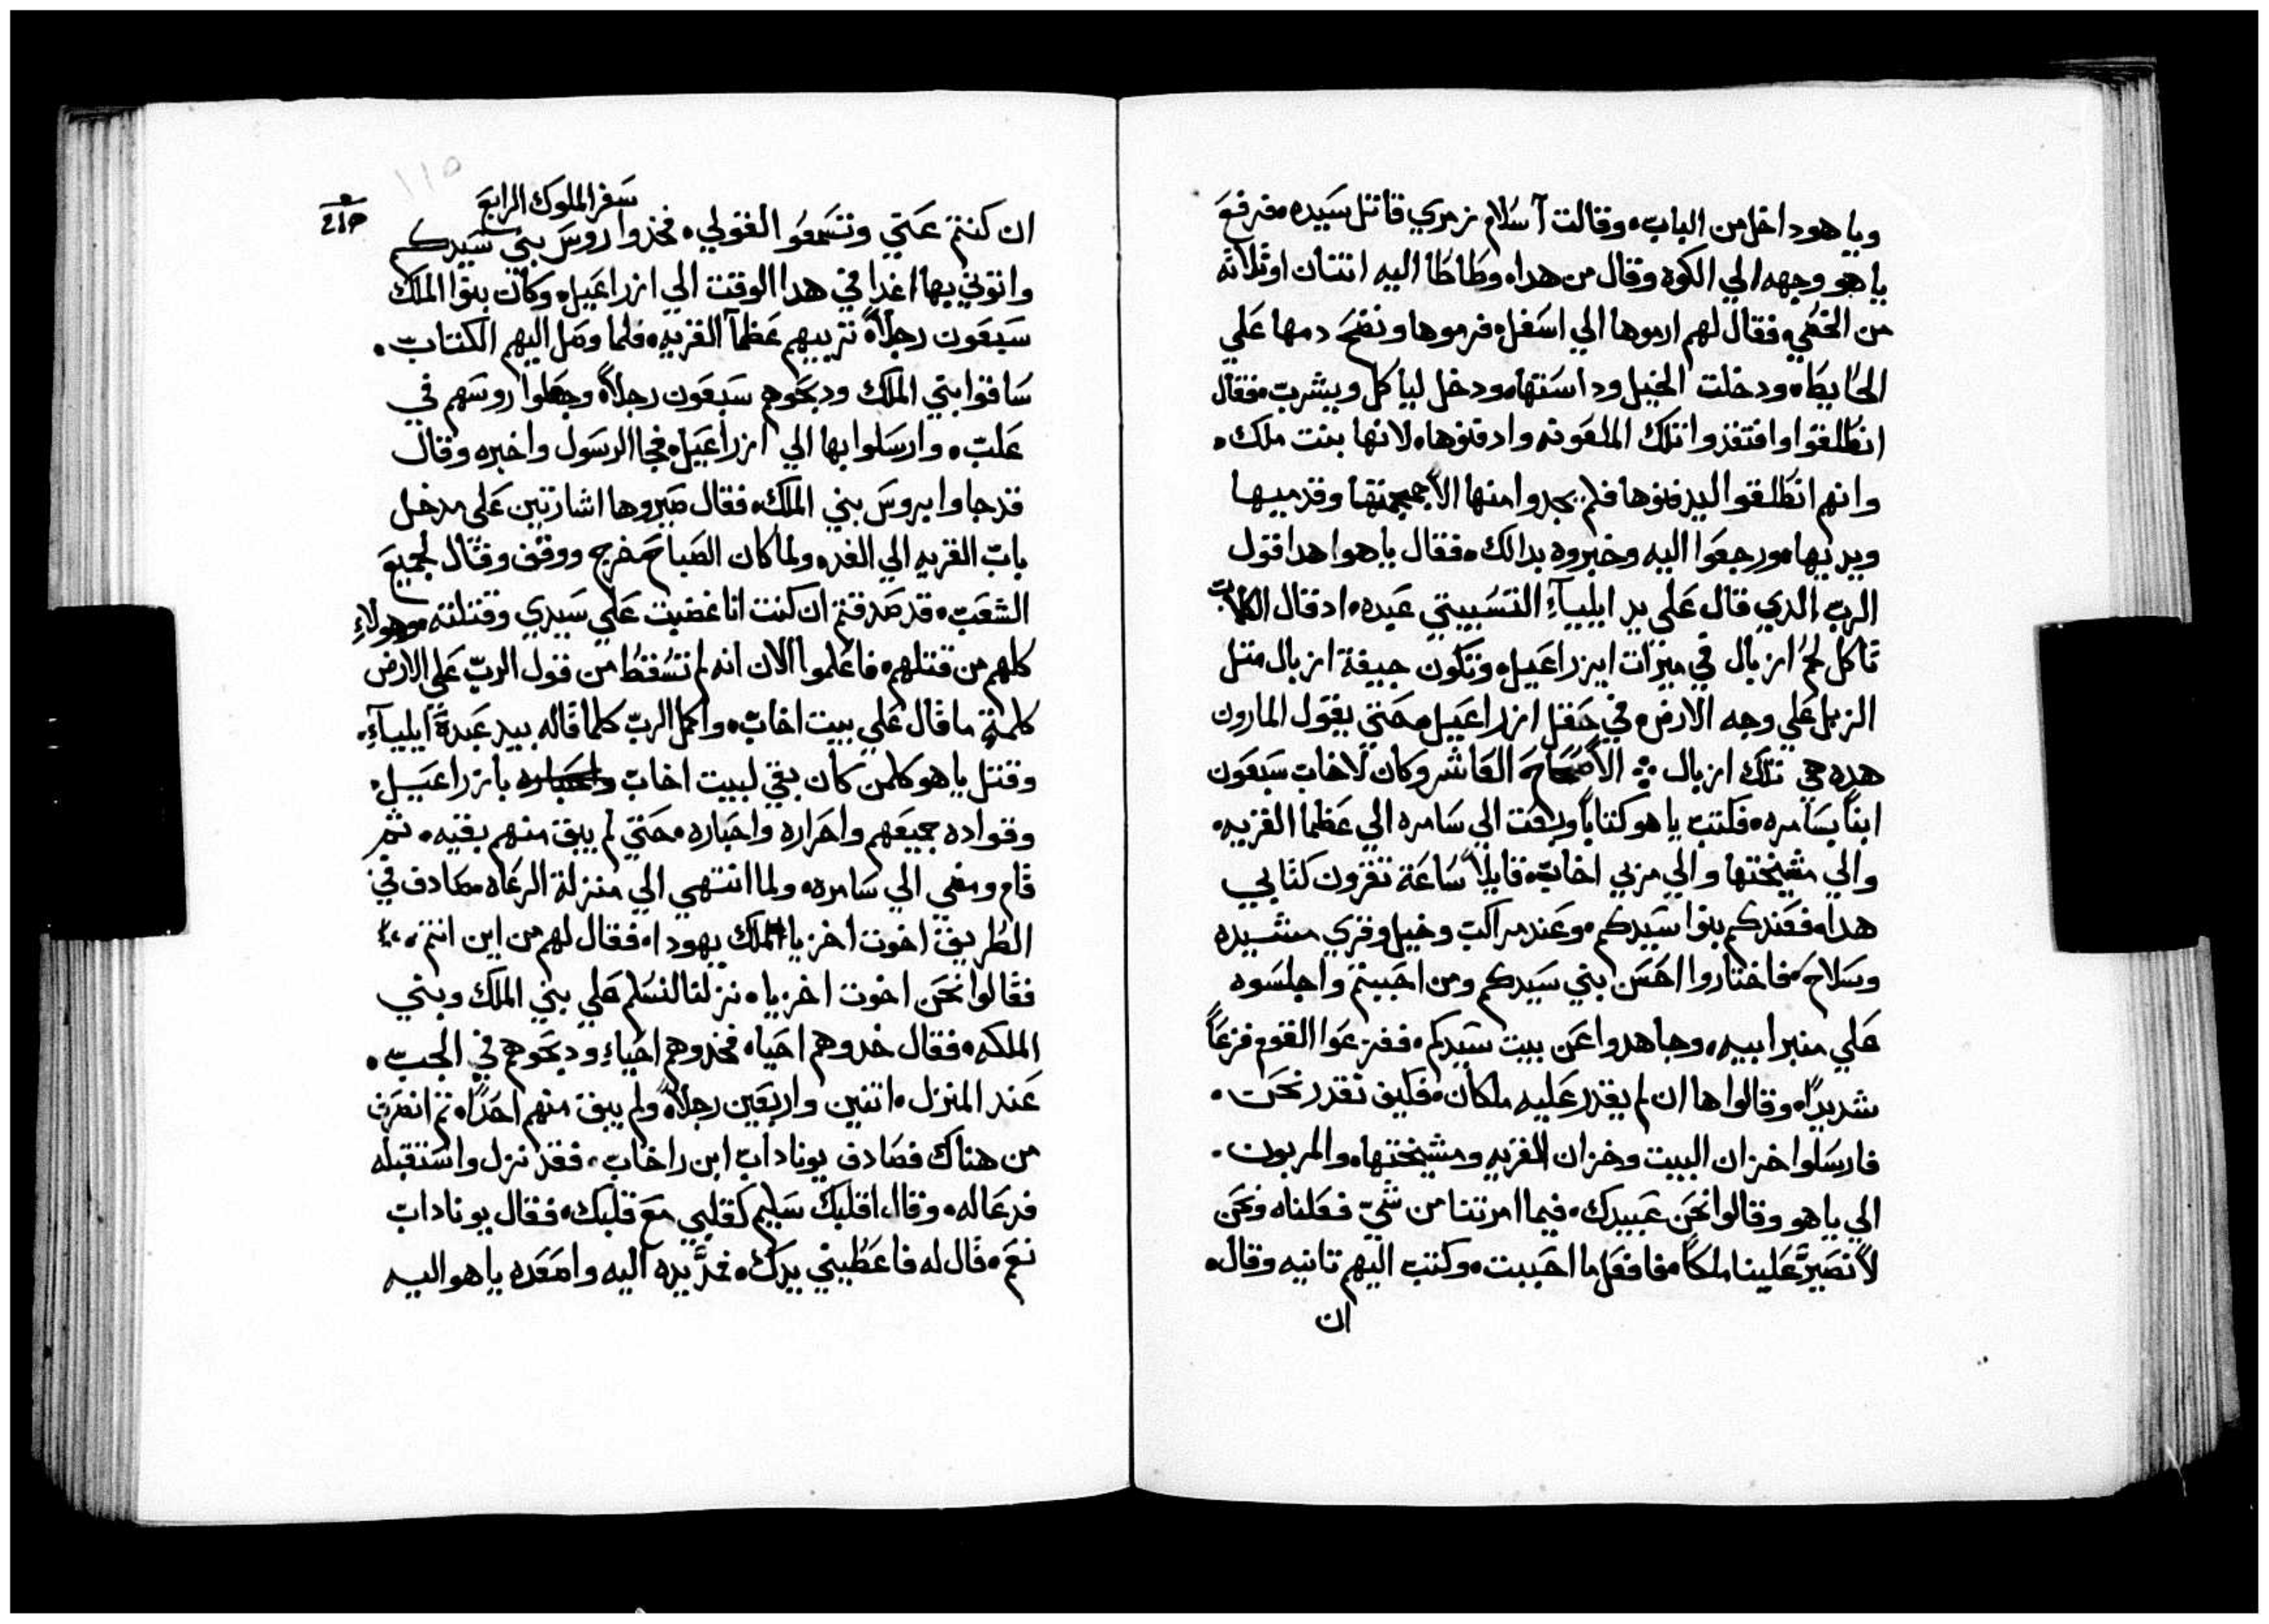 وياهو داخل من الباب، وقالت آسلام زمري قاتل سيده، فرفع
ياهو وجهه الي الكوه وقال من هدا، وطاطا اليه اتنان اوتلاته
من الخصي، فقال لهم ارموها الي اسفل، فرموها ونضح دمها علي
الحايط، ودخلت الخيل وداستها، ودخل لياكل ويشرب، فقال
انطلقوا وافتقدوا تلك الملعونه وادفنوها، لانها بنت ملك،
وانهم انطلقوا ليدفنوها فلم يجدوا منها الا جمجمتها وقدميها
ويديها، ورجعوا اليه وخبروه بدالك، فقال ياهوا هدا قول
الرب الدي قال علي يد ايلياء التسبيتي عبده، ادقال الكلاب
تاكل لحم ازبال في ميرات ايزراعيل، وتكون جيفة ازبال متل
الزبل علي وجه الارض، في حقل ازراعيل، حتي يقول المارون
هده هي تلك ازبال ⁘ الاصحاح العاشر وكان لاخاب سبعون
ابناً بسامره، فكتب ياهو كتاباً وبعت الي سامره الي عظما القريه،
والي مشيختها والي مربي اخاب، قايلاً ساعة تقرون كتابي
هدا، فعندكم بنوا سيدكم، وعندمراكب وخيل وقري مشيده
وسلاح، فاختاروا احسن بني سيدكم ومن احببتم واجلسوه
علي منبر ابيه، وجاهدوا عن بيت سيدكم، ففزعوا القوم فزعاً
شديداً، وقالوا ها ان لم يقدر عليه ملكان، فكيف نقدر نحن،
فارسلوا خزان البيت وخزان القريه ومشيختها، والمربون،
الي ياهو وقالوا نحن عبيدك، فيما امرتنا من شيّ فعلناه ونحن
لا نصيرّ علينا ملكاً، فافعل ما احببت، وكتب اليهم تانيه وقال،
ان
سفر الملوك الرابع
ان كنتم عتي وتسمعوا لقولي، فخدوا روس بني سيدكم
واتوني بها غدا في هدا الوقت الي ازراعيل، وكان بنوا الملك
سبعون رجلاً، تربيهم عظما القريه، فلما وصل اليهم الكتاب،
ساقوا بني الملك ودبحوهم سبعون رجلاً، وجعلوا روسهم في
علب، وارسلوا بها الي ازراعيل، فجا الرسول واخبره وقال
قد جاوا بروس بني الملك، فقال صيروها اشارتين علي مدخل
باب القريه الي الغد، ولما كان الصباح خرج ووقف وقال لجميع
الشعب، قد صدقتم ان كنت انا غضبت علي سيدي وقتلته، وهولاء
كلهم من قتلهم، فاعلموا الان انه لم تسقط من قول الرب علي الارض
كلمة، ما قال علي بيت اخاب، واكمل الرب كلما قاله بيد عبدة ايلياء،
وقتل ياهو كلمن كان بقي لبيت اخاب بازراعيل،
وقواده جميعهم واحراره واحباره، حتي لم يبق منهم بقيه، تم
قام ومضي الي سامره، ولما انتهي الي منزلة الرعاه، صادف في
الطريق اخوت اخزيا ملك يهودا، فقال لهم من اين انتم،
فقالوا نحن اخوت اخزيا، نزلنا لنسلم علي بني الملك وبني
الملكه، فقال خدوهم احيا، فخدوهم احياء ودبحوهم في الجب،
عند المنزل، اتنين واربعين رجلاً، ولم يبق منهم احداً، تم انصرف
من هناك فصادف يوناداب ابن راخاب، فقد نزل واستقبله
فدعاله، وقال اقلبك سليم كقلبي مع قلبك، فقال يوناداب
نعم، قال له فاعطيني يدك، فمدّ يده اليه واصعده ياهو اليه